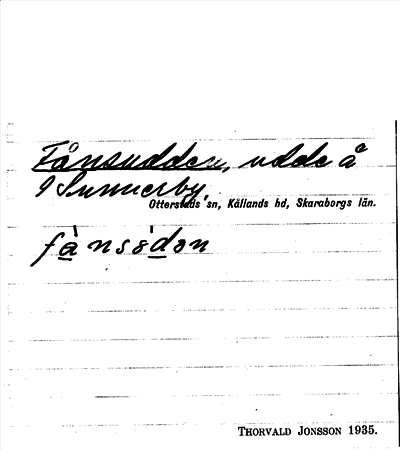 Fånsudden, udde å
9 Sunnerby,
Otterstads sn, Kållands hd, Skaraborgs län.
fànsödən
THORVALD JONSSON 1935.